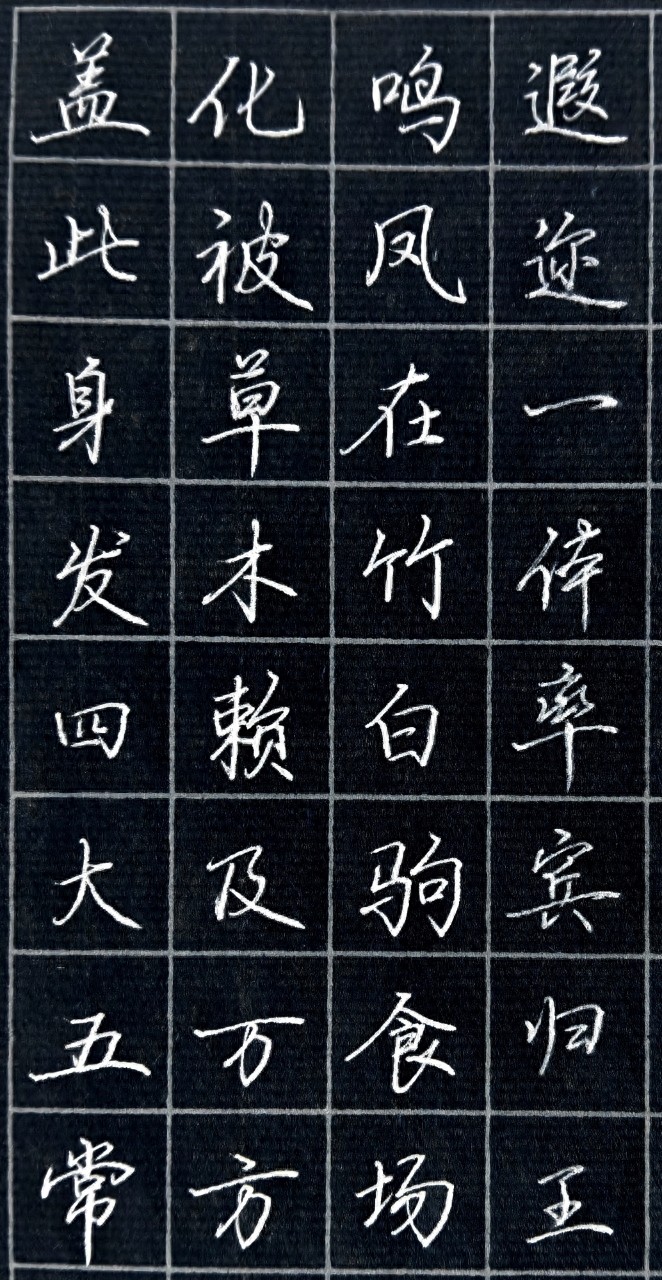 遐迩一体率宾归王
鸣凤在竹白驹食场
化被草木赖及万方
盖此身发四大五常